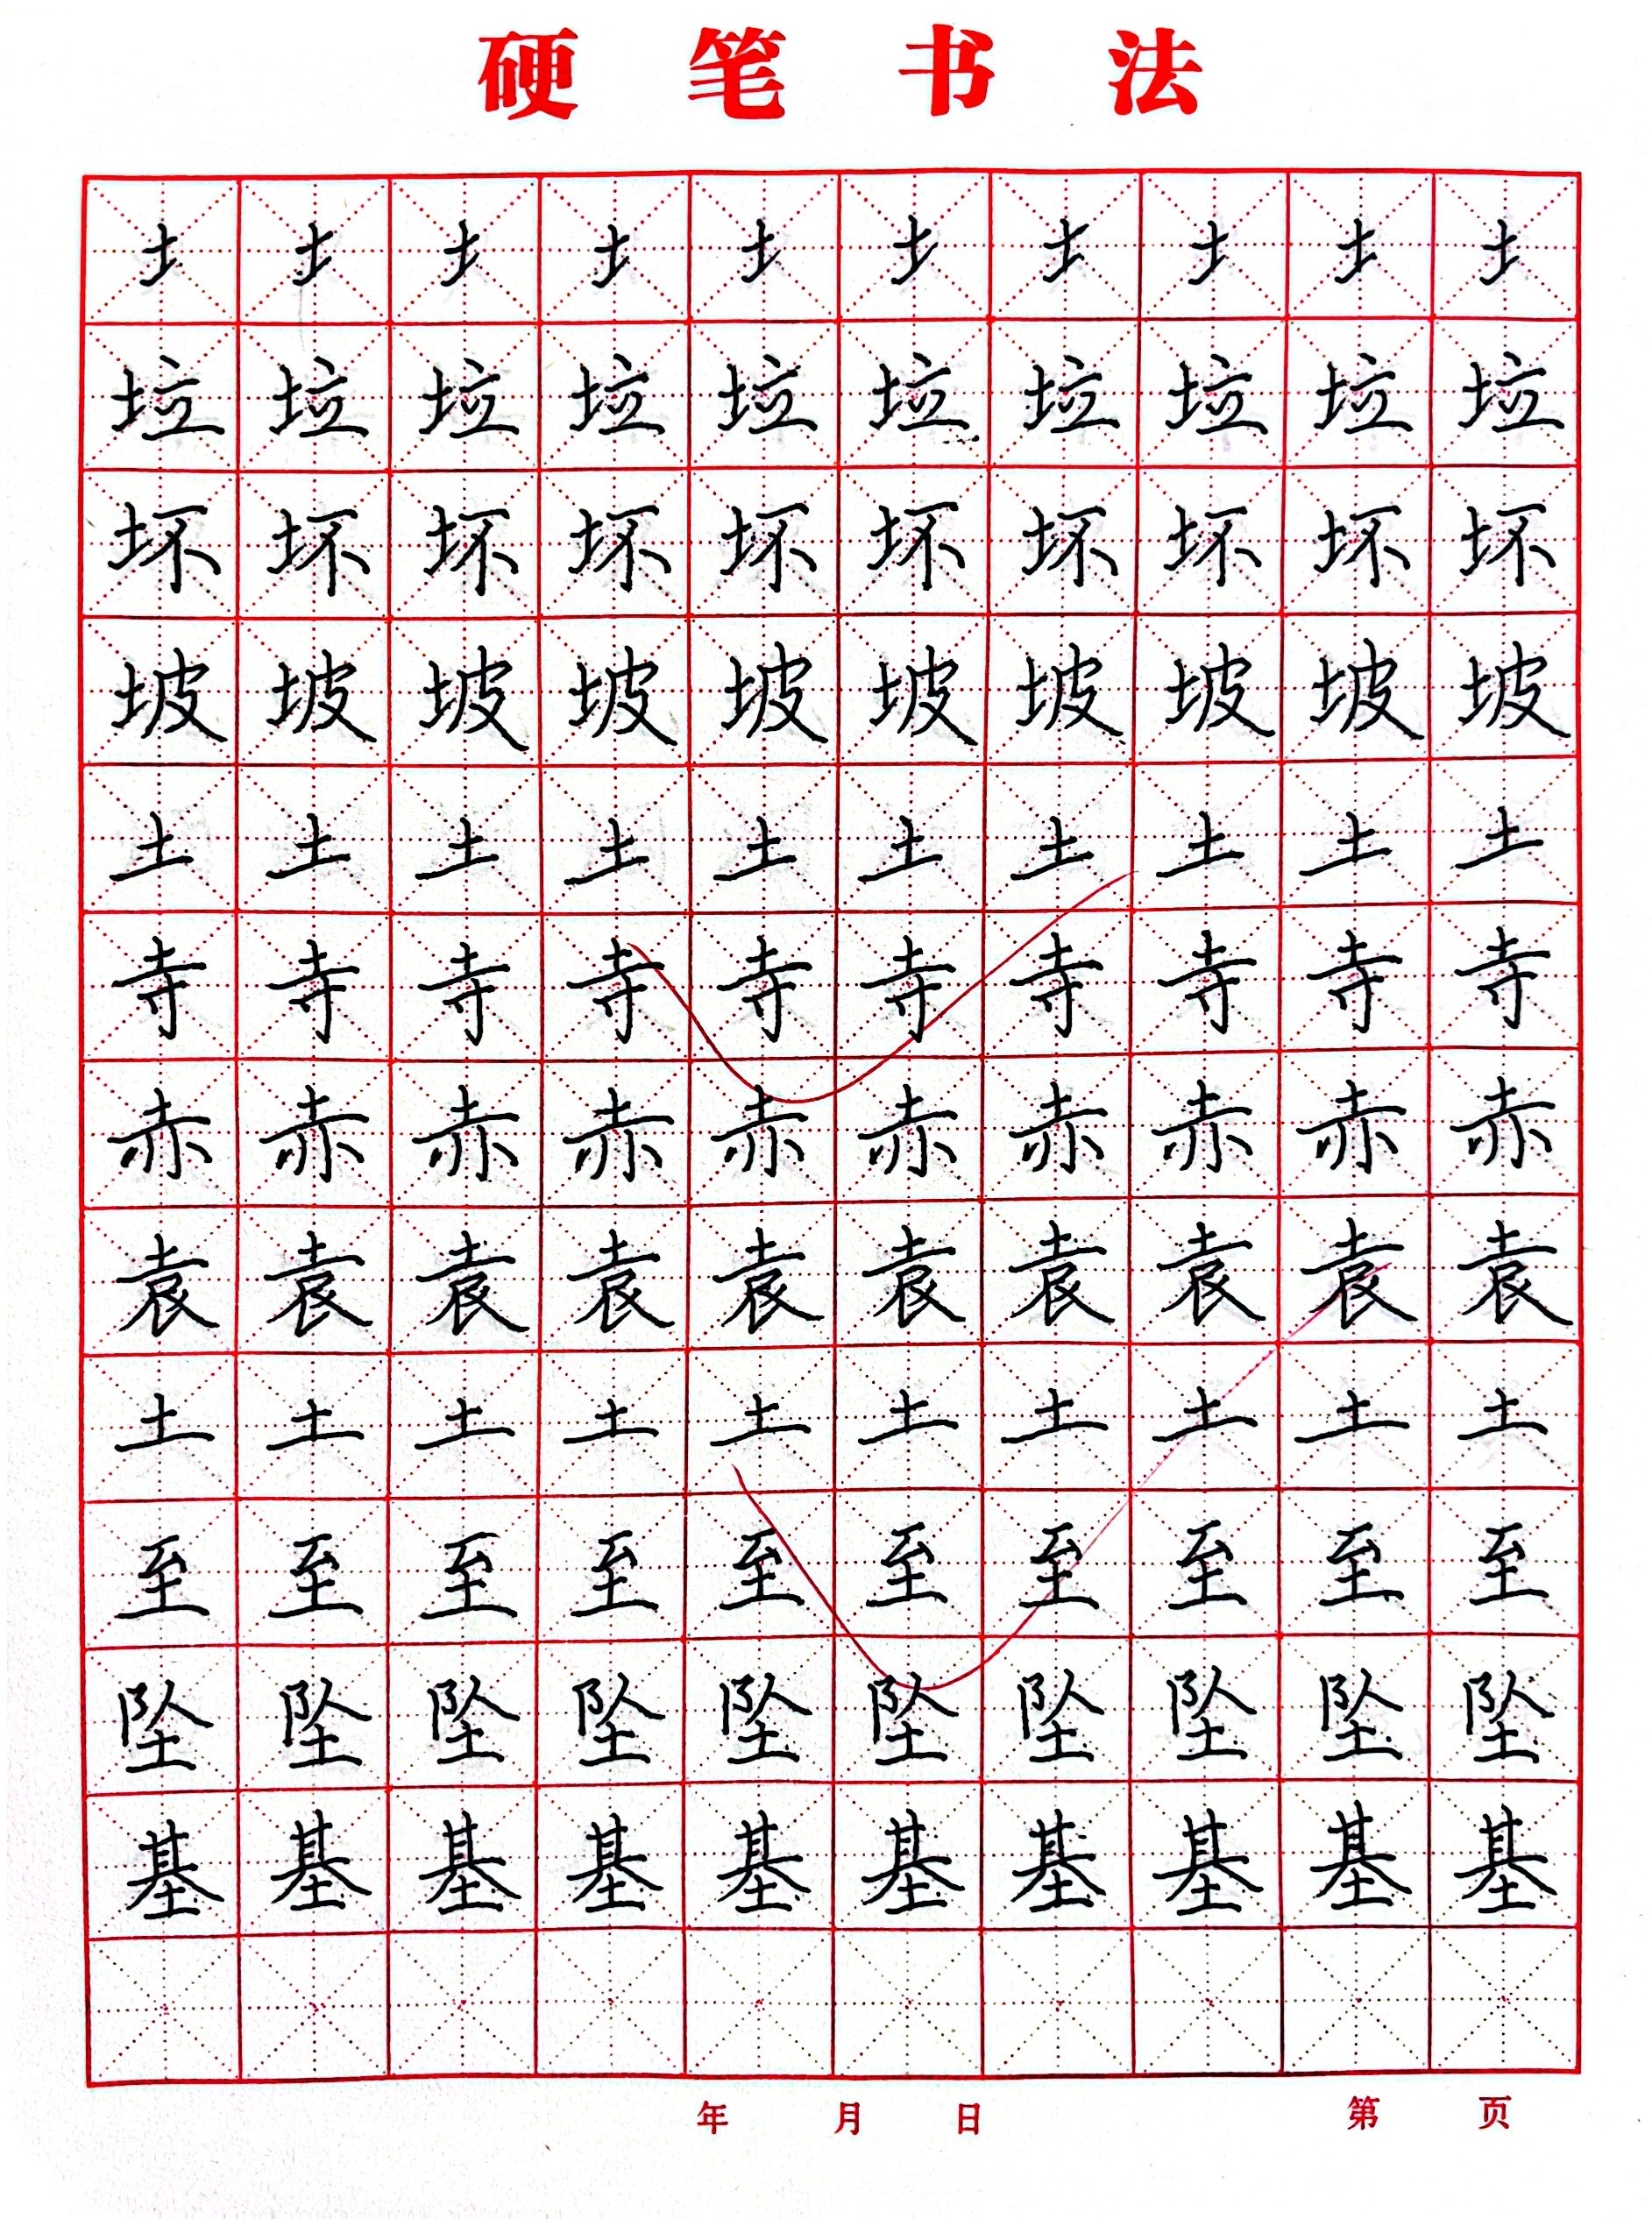 硬笔书法
土土土土土土土土土土
垃垃垃垃垃垃垃垃垃垃
坏坏坏坏坏坏坏坏坏坏
坡坡坡坡坡坡坡坡坡坡
土土土土土土土土土土
寺寺寺寺寺寺寺寺寺寺
赤赤赤赤赤赤赤赤赤赤
袁袁袁袁袁袁袁袁袁袁
土土土土土土土土土土
至至至至至至至至至至
坠坠坠坠坠坠坠坠坠坠
基基基基基基基基基基
年 月 日 第 页